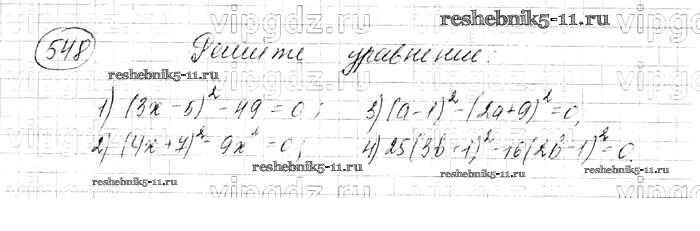 reshebnik5-11.ru
548 Решите уравнение:
reshebnik5-11.ru
1) (3x - 5)² - 49 = 0; 3) (a - 1)² - (2a + 9)² = 0,
2) (4x + 7)² - 9x² = 0; 4) 25(3b + 1)² - 16(2b - 1)² = 0.
reshebnik5-11.ru
reshebnik5-11.ru reshebnik5-11.ru reshebnik5-11.ru